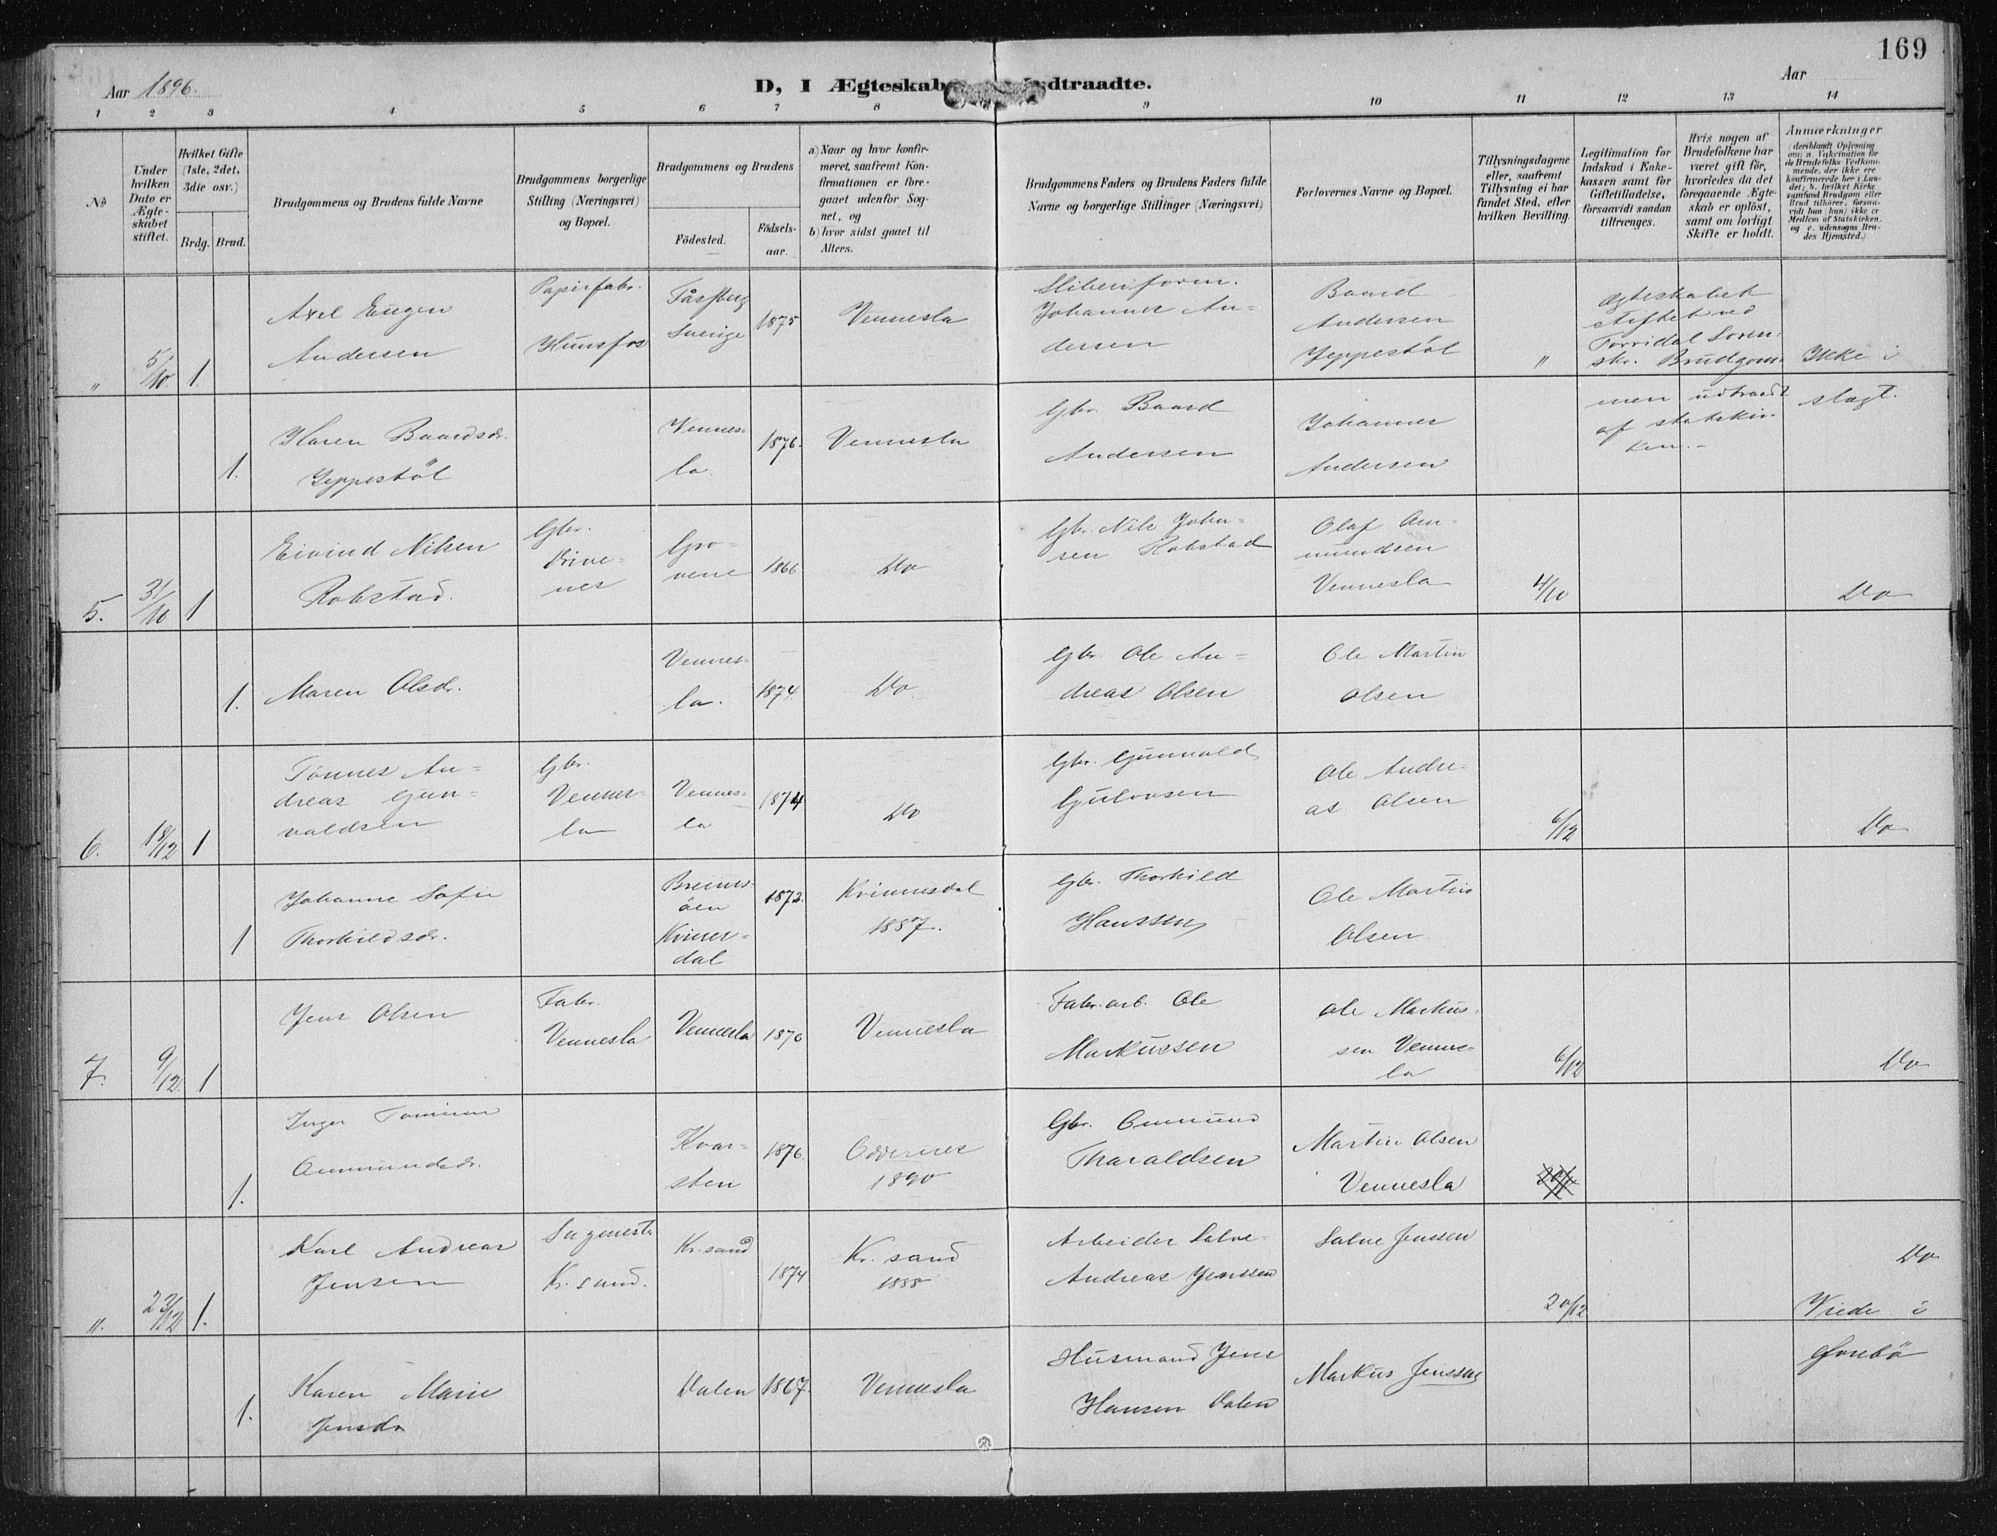 169
Aar 1896.
D, I Ægteskab
dtraadte.
Aar
1 2 3 4 5 6 7 8 9 10 11 12 13 14
No
Under hvilken Dato er Ægte-skabet stiftet.
Hvilket Gifte (1ste, 2det, 3die osv.)
Brdg. Brud.
Brudgommens og Brudens fulde Navne
Brudgommens borgerlige Stilling (Næringsvei) og Bopæl.
Brudgommens og Brudens
Fødested.
Fødsels-aar.
a) Naar og hvor konfir-meret, saafremt Kon-firmationen er fore-gaaet udenfor Sog-net, og
b) hvor sidst gaaet til Alters.
Brudgommens Faders og Brudens Faders fulde Navne og borgerlige Stillinger (Næringsvei)
Forlovernes Navne og Bopæl.
Tillysningsdagene eller, saafremt Tillysning ei har fundet Sted, efter hvilken Bevilling.
Legitimation for Indskud i Enke-kassen samt for Giftetilladelse, forsaavidt saadan tiltrænges.
Hvis nogen af Brudefolkene har været gift før, hvorledes da det foregaaende Ægte-skab er opløst, samt om lovligt Skifte er holdt.
Anmærkninger
(deriblandt Oplysning om: a. Vakcination for de Brudefolks Vedkom-mende, der ikke ere konfirmerede her i Lan-det; b. hvilket Kirke-samfund Brudgom eller Brud tilhører, forsaa-vidt han (hun) ikke er Medlem af Statskirken, og c. udensogns Bru-des Hjemsted.)
" 5/10 1.
Axel Eugen
Andersen
Papirfabr.
Hunsfos
Sverige
1875
Vennesla
Johannes An-
dersen
Baard
Andersen
Jeppestøl
"
Ægteskabet
stiftet ved
Torridal Soren-
skr. Brudgom-
men udtraadt
af statskir-
ken.-
Ikke i
slægt.
1.
Karen Baardsdr.
Jeppestøl
Vennes-
la.
1876.
Vennesla
Gbr. Baard
Andersen
Johannes
Andersen
5. 31/10 1
Eivind Nilsen
Robstad.
Gbr.
Drive-
nes
Gro-
vene
1866
Do
Gbr. Nils John-
sen Robstad
Olaf Om-
mundsen
Vennesla
4/10
Do
1.
Maren Olsdr.
Vennes-
la.
1874.
Do.
Gbr. Ole An-
dreas Olsen
Ole Martin
Olsen
6. 18/12 1
Tønnes An-
dreas Gun-
valdsen
Gbr.
Vennes-
la
Vennes-
la
1874
Do
Gbr. Gunvald
Gulovsen
Ole Andre-
as Olsen
6/12
Do
1
Johanne Sofie
Thorkildsdr.
øen
Kvines-
dal
1872.
Kvinnesdal
1887.
Gbr. Thorkild
Hanssen
Ole Martin
Olsen.
7. 9/12. 1
Jens Olsen
Fabr.
Vennesla
Vennesla
1870
Vennesla
Fabr. arb. Ole
Markussen
Ole Markus-
sen Vennes-
la
6/12
Do
1.
Inger Tomine
Ommundsdr.
Kvar-
sten
1876.
Oddernes
1890
Gbr. Ommund
Tharaldsen
Martin Olsen
Vennesla
". 23/12 1.
Karl Andreas
Jensen
Kr. sand.
Kr. sand
1874
Kr. sand
1888
Arbeider Salve
Andreas Jenssen
Salve Jenssen
20/12
Do
Viede i
Øvrebø
1.
Karen Marie
Jensdr
Dalen
1867.
Vennesla
Husmand Jens
Hansen Dalen
Markus Jenssen